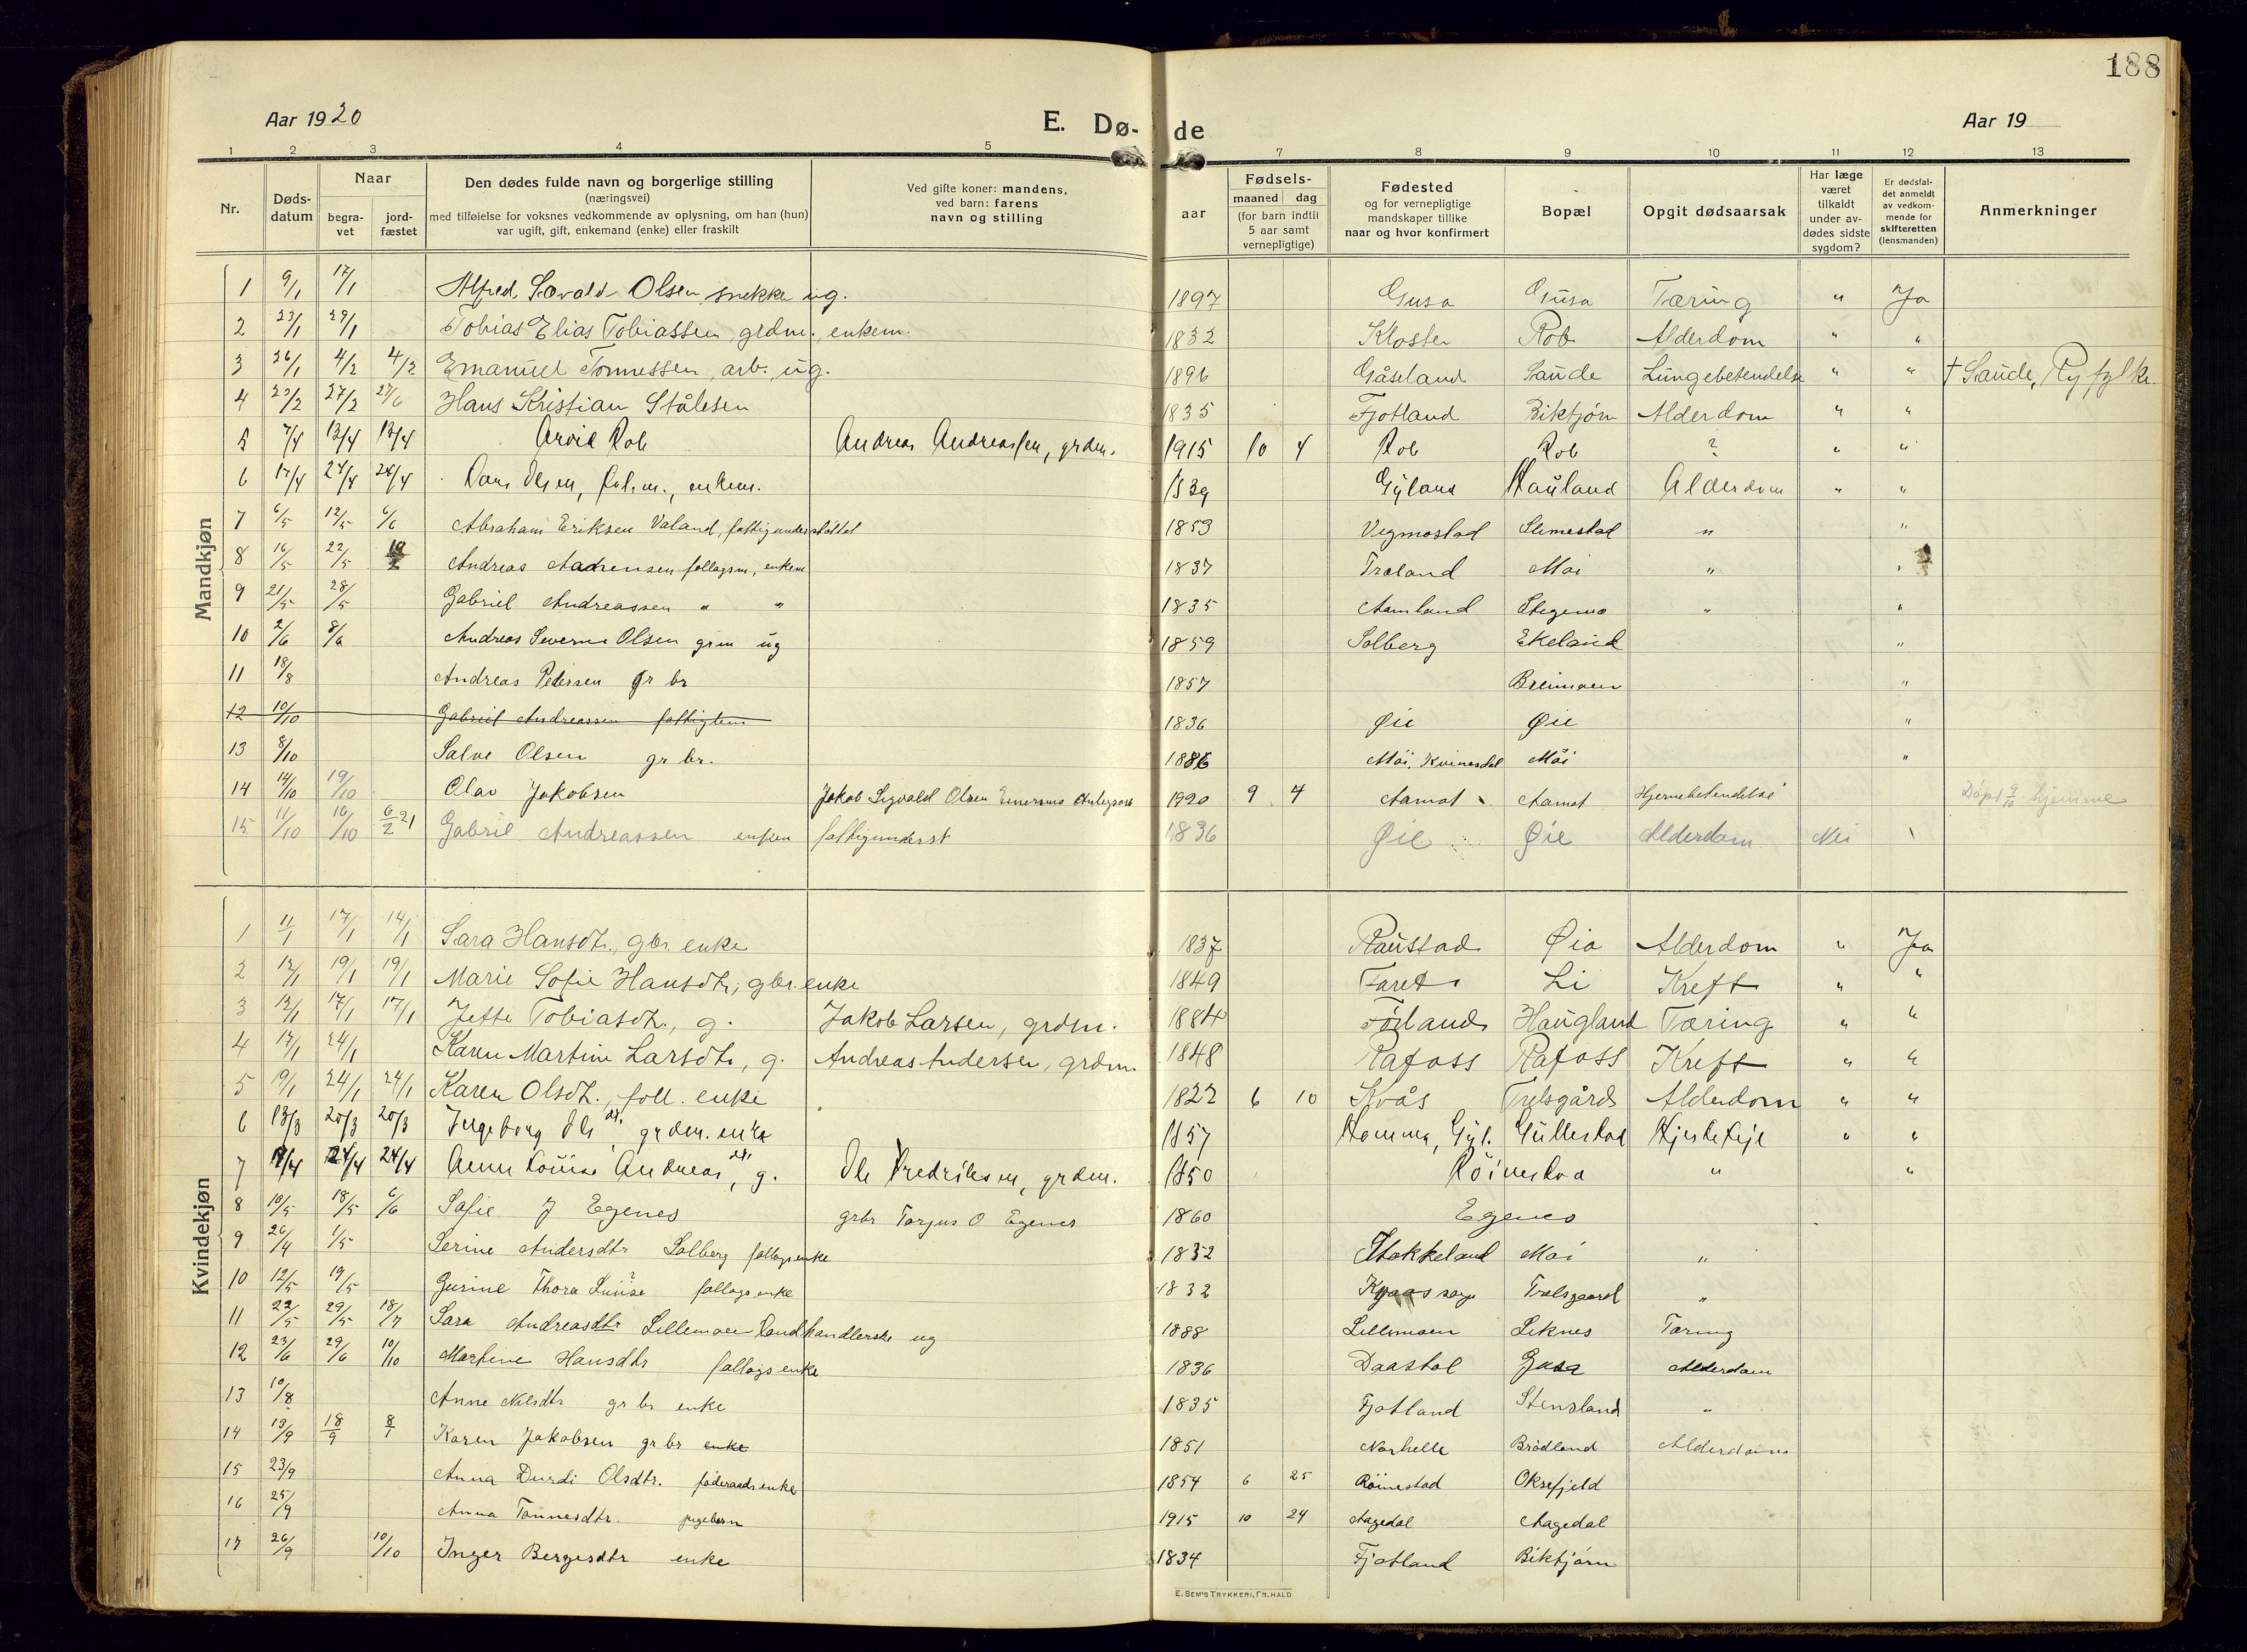 188
Aar 1920 E. Dø- de Aar 19
1 2 3 4 5 7 8 9 10 11 12 13
Nr. Døds-datum Naar begra-vet jord-fæstet Den dødes fulde navn og borgerlige stilling (næringsvei) med tilføielse for voksnes vedkommende av oplysning, om han (hun) var ugift, gift, enkemand (enke) eller fraskilt Ved gifte koner: mandens, ved barn: farens navn og stilling aar Fødsels- maaned dag (for barn indtil 5 aar samt vernepligtige) Fødested og for vernepligtige mandskaper tillike naar og hvor konfirmert Bopæl Opgit dødsaarsak Har læge været tilkaldt under av-dødes sidste sygdom? Er dødsfal-det anmeldt av vedkom-mende for skifteretten (lensmanden) Anmerkninger
Mandkjøn
1 9/1 17/1 Alfred Sevald Olsen, snekker ug. 1897 Gusa Gusa Tæring " Ja
2 23/1 29/1 Tobias Elias Tobiassen, grdm., enkem. 1832 Kloster Rob Alderdom " "
3 26/1 4/2 4/2 Emanuel Tonnessen, arb., ug. 1896 Gåseland Saude Lungebetendelse " " † Saude, Ryfylke.
4 23/2 27/2 27/6 Hans Kristian Stålesen 1835 Fjotland Biktjørn Alderdom " "
5 7/4 13/4 13/4 Arvid Rob Andreas Andreassen, grdm. 1915 10 4 Rob Rob ? " "
6 17/4 24/4 24/4 Olsen, enkem. 1839 Gyland Hauland Alderdom " "
7 6/5 12/5 6/6 Abraham Eriksen Valand, fattigunderstøttet 1853 Vegmostad Slimestad " "
8 16/5 22/5 Andreas Aadnensen follagsm, enkem 1837 Træland Moi " "
9 21/5 28/5 Gabriel Andreassen " " 1835 Aamland Stegemo " "
10 2/6 8/6 Andreas Severin Olsen grm ug 1859 Solberg Ekeland "
11 18/8 Andreas Pedersen gr br 1857 Breimoen "
12 10/10 Gabriel Andreassen fattiglem 1836 Øie Øie "
13 8/10 Salve Olsen gr br. 1886 Moi, Kvinesdal Moi "
14 14/10 19/10 Olav Jakobsen Jakob Sigvald Olsen 1920 9 4 Aamot Aamot Hjernebetendelse Døpt 9/10 hjemme
15 11/10 16/10 6/2 21 Gabriel Andreassen enkem fattigunderst 1836 Øie Øie Alderdom Nei
Kvindekjøn
1 11/1 17/1 14/1 Sara Hansdtr., gbr. enke 1837 Raustad Øia Alderdom " Ja
2 12/1 19/1 19/1 Marie Sofie Hansdtr, gbr. enke 1849 Faret Li Kreft " "
3 12/1 17/1 17/1 Jette Tobiasdtr., g. Jakob Larsen, grdm. 1884 Førland Haugland Tæring " "
4 17/1 24/1 Karen Martine Larsdtr, g. Andreas Andersen, grdm. 1848 Rafoss Rafoss Kreft " "
5 19/1 24/1 24/1 Karen Olsdtr., foll. enke 1827 6 10 Kvås Trelsgård Alderdom " "
6 13/3 20/3 20/3 Ingeborg Olsdt, grdm. enke 1857 Homme, Gyl. Gullestad Hjertefeil " "
7 17/4 24/4 24/4 Anne Louise Andreasdt, g. Ole Fredriksen, grdm. 1850 Röinestad " "
8 10/5 18/5 6/6 Sofie J Egenes grbr Torjus O Egenes 1860 Egenes
9 26/4 1/5 Serine Andersdtr Solberg follagsenke 1832 Stokkeland Moi "
10 12/5 19/5 Gurine Thora Luise follagsenke 1832 Trælsgaard "
11 22/5 29/5 18/7 Sara Andreasdtr Lillemoen Landhandlerske ug 1888 Lillemoen Liknes Tæring
12 23/6 29/6 10/10 Martine Hansdtr follagsenke 1836 Daastøl Gusa Alderdom
13 10/8 Anne Nilsdtr gr br enke 1835 Fjotland Stensland "
14 13/9 18/9 8/1 Karen Jakobsen gr br enke 1851 Narhelle Brødland Alderdoms
15 23/9 Anna Durdi Olsdtr. føderaadsenke 1854 6 25 Röinestad Oksefjeld
16 25/9 Anna Tønnesdtr. pigebarn 1915 10 24 Aagedal Aagedal
17 26/9 10/10 Inger Bergesdtr enke 1834 Fjotland Biktjørn
E. SEM'S TRYKKERI, FR.HALD